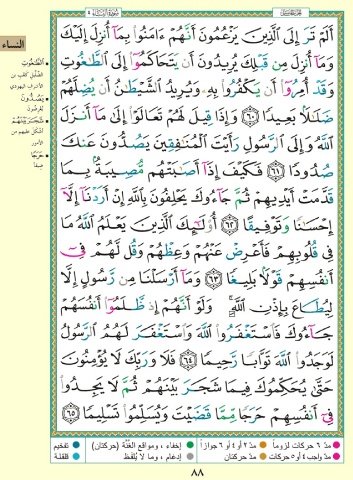 سورة النساء ٤
الجزء الخامس
أَلَمْ تَرَ إِلَى ٱلَّذِينَ يَزْعُمُونَ أَنَّهُمْ ءَامَنُوا۟ بِمَآ أُنزِلَ إِلَيْكَ
وَمَآ أُنزِلَ مِن قَبْلِكَ يُرِيدُونَ أَن يَتَحَاكَمُوٓا۟ إِلَى ٱلطَّـٰغُوتِ
وَقَدْ أُمِرُوٓا۟ أَن يَكْفُرُوا۟ بِهِۦ وَيُرِيدُ ٱلشَّيْطَـٰنُ أَن يُضِلَّهُمْ
ضَلَـٰلًۢا بَعِيدًا ٦٠ وَإِذَا قِيلَ لَهُمْ تَعَالَوْا۟ إِلَىٰ مَآ أَنزَلَ
ٱللَّهُ وَإِلَى ٱلرَّسُولِ رَأَيْتَ ٱلْمُنَـٰفِقِينَ يَصُدُّونَ عَنكَ
صُدُودًا ٦١ فَكَيْفَ إِذَآ أَصَـٰبَتْهُم مُّصِيبَةٌۢ بِمَا
قَدَّمَتْ أَيْدِيهِمْ ثُمَّ جَآءُوكَ يَحْلِفُونَ بِٱللَّهِ إِنْ أَرَدْنَآ إِلَّآ
إِحْسَـٰنًا وَتَوْفِيقًا ٦٢ أُو۟لَـٰٓئِكَ ٱلَّذِينَ يَعْلَمُ ٱللَّهُ مَا
فِى قُلُوبِهِمْ فَأَعْرِضْ عَنْهُمْ وَعِظْهُمْ وَقُل لَّهُمْ فِىٓ
أَنفُسِهِمْ قَوْلًۢا بَلِيغًا ٦٣ وَمَآ أَرْسَلْنَا مِن رَّسُولٍ إِلَّا
لِيُطَاعَ بِإِذْنِ ٱللَّهِ ۚ وَلَوْ أَنَّهُمْ إِذ ظَّلَمُوٓا۟ أَنفُسَهُمْ
جَآءُوكَ فَٱسْتَغْفَرُوا۟ ٱللَّهَ وَٱسْتَغْفَرَ لَهُمُ ٱلرَّسُولُ
لَوَجَدُوا۟ ٱللَّهَ تَوَّابًا رَّحِيمًا ٦٤ فَلَا وَرَبِّكَ لَا يُؤْمِنُونَ
حَتَّىٰ يُحَكِّمُوكَ فِيمَا شَجَرَ بَيْنَهُمْ ثُمَّ لَا يَجِدُوا۟
فِىٓ أَنفُسِهِمْ حَرَجًا مِّمَّا قَضَيْتَ وَيُسَلِّمُوا۟ تَسْلِيمًا ٦٥
النساء
الطَّـٰغُوتِ
الضِّلِّيلِ كعب بن
الأشرف اليهودي
يَصُدُّونَ
يُعْرِضُونَ
شَجَرَ بَيْنَهُمْ
أشكل عليهم من
الأمور
حَرَجًا
ضيقاً
مدّ ٦ حركات لزوماً
مدّ ٢ أو ٤ أو ٦ جوازاً
إخفاء، ومواقع الغُنَّة (حركتان)
تفخيم
مدّ واجب ٤ أو ٥ حركات
مدّ حركتان
إدغام، وما لا يُلفَظ
قلقلة
٨٨